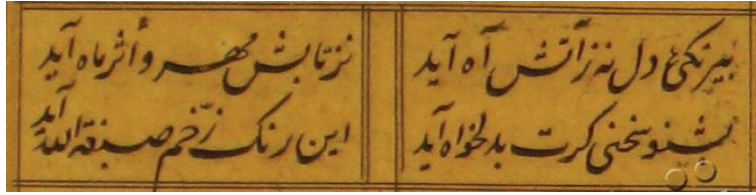 بیرنگی دل نه زآتش آه آید
نز تابش مهر و اثر ماه آید
بشنو سخنی کرت بدلخواه آید
این رنگ زخم صبغة الله آید